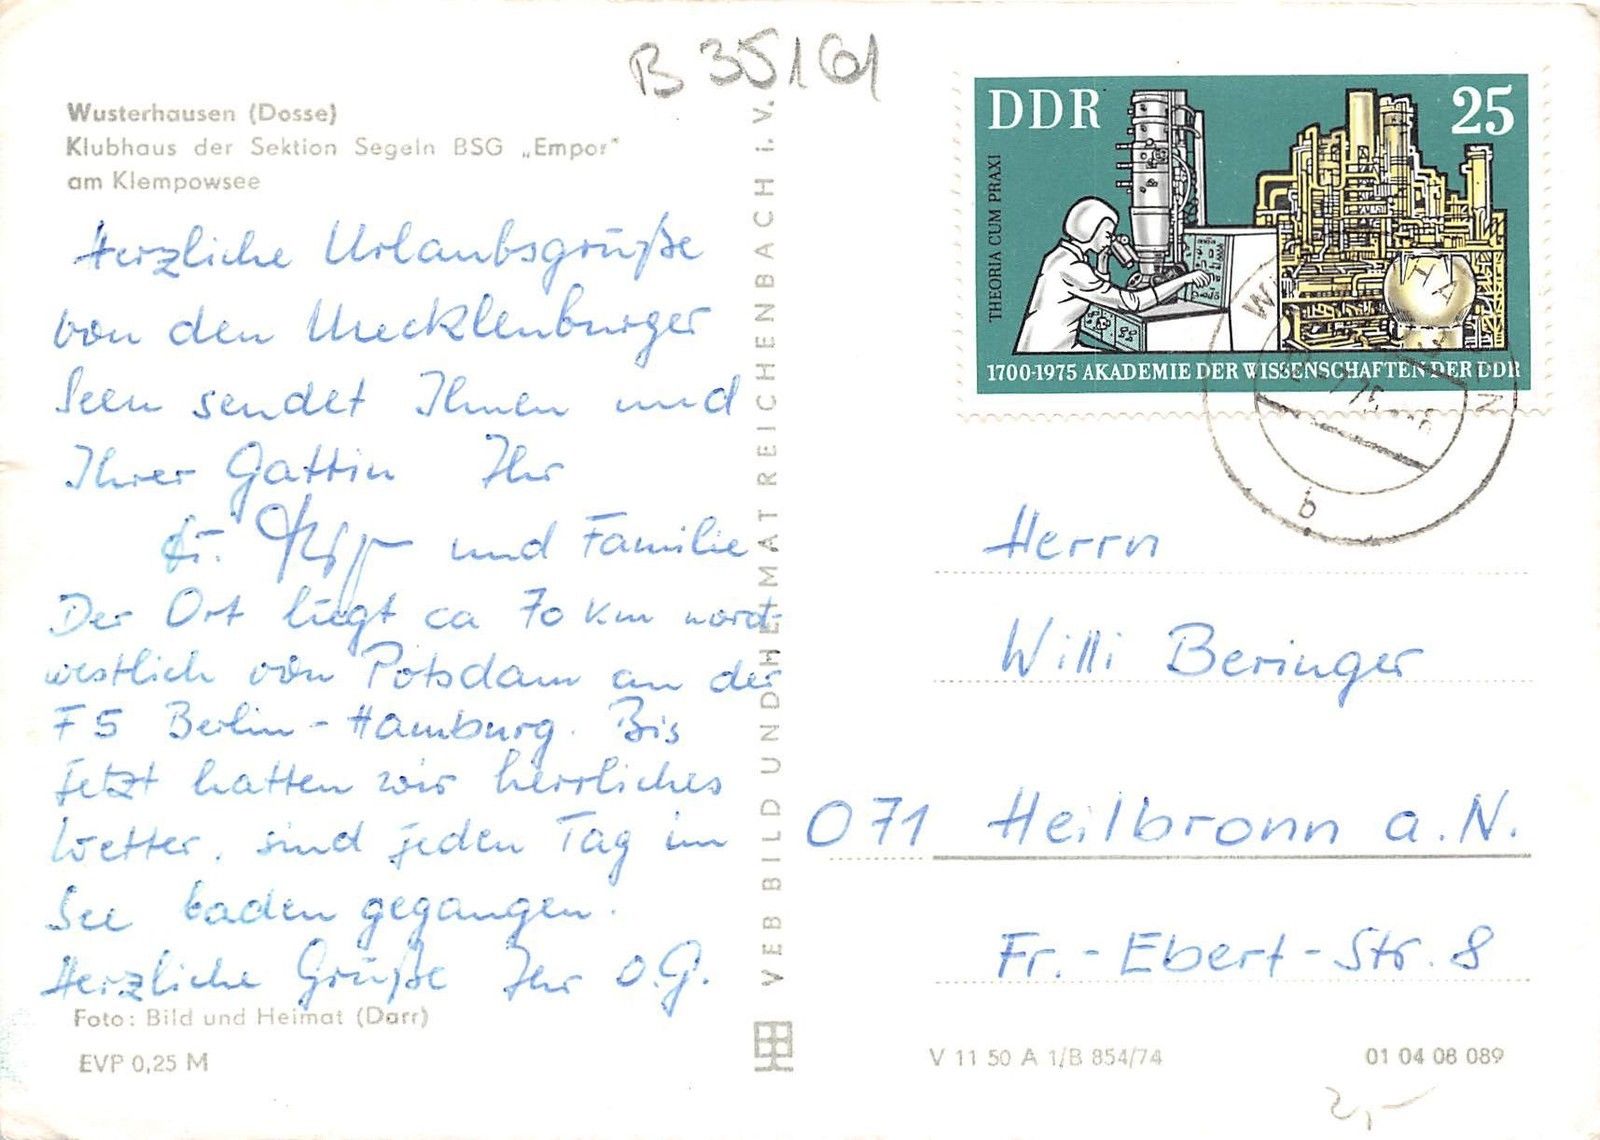 B 35161
Wusterhausen (Dosse)
Klubhaus der Sektion Segeln BSG „Empor"
am Klempowsee
Herzliche Urlaubsgrüße
von den Mecklenburger
Seen sendet Ihnen und
Ihrer Gattin Ihr
und Familie
Der Ort liegt ca 70 km nord-
westlich von Potsdam an der
F5 Berlin-Hamburg. Bis
jetzt hatten wir herrliches
Wetter, sind jeden Tag im
See baden gegangen.
Herzliche Grüße Ihr O.G.
Foto: Bild und Heimat (Darr)
EVP 0,25 M
VEB BILD UND HEIMAT REICHENBACH i. V.
DDR
25
THEORIA CUM PRAXI
1700-1975 AKADEMIE DER WISSENSCHAFTEN DER DDR
b
Herrn
Willi Beringer
071 Heilbronn a.N.
Fr.-Ebert-Str. 8
V 11 50 A 1/B 854/74
01 04 08 089
2,-